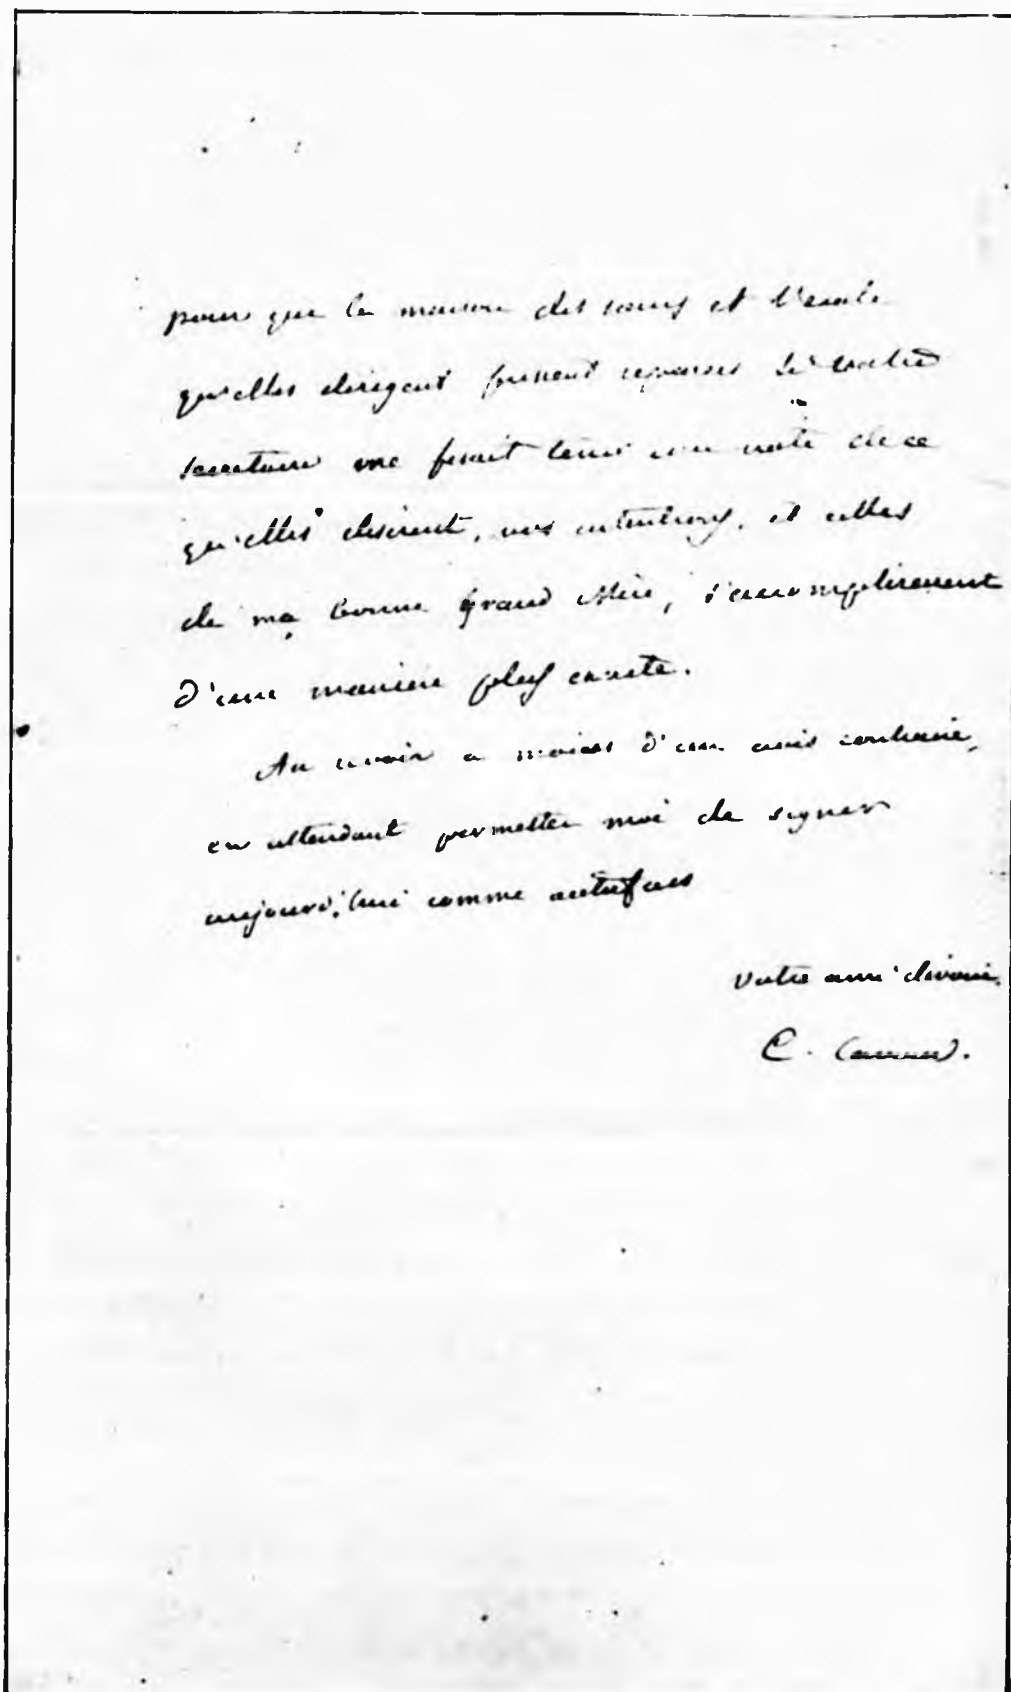 pour que la maison des sœurs et l'école
qu'elles dirigent fussent reparées. Si votre
secretaire me ferait tenir une note de ce
qu'elles desirent, vos intentions, et celles
de ma bonne Grand Mère, s'accompliraient
d'une manière plus exacte.
Au revoir a moins d'un avis contraire,
en attendant permettez moi de signer
aujourd'hui comme autrefois
Votre ami devoué.
C.